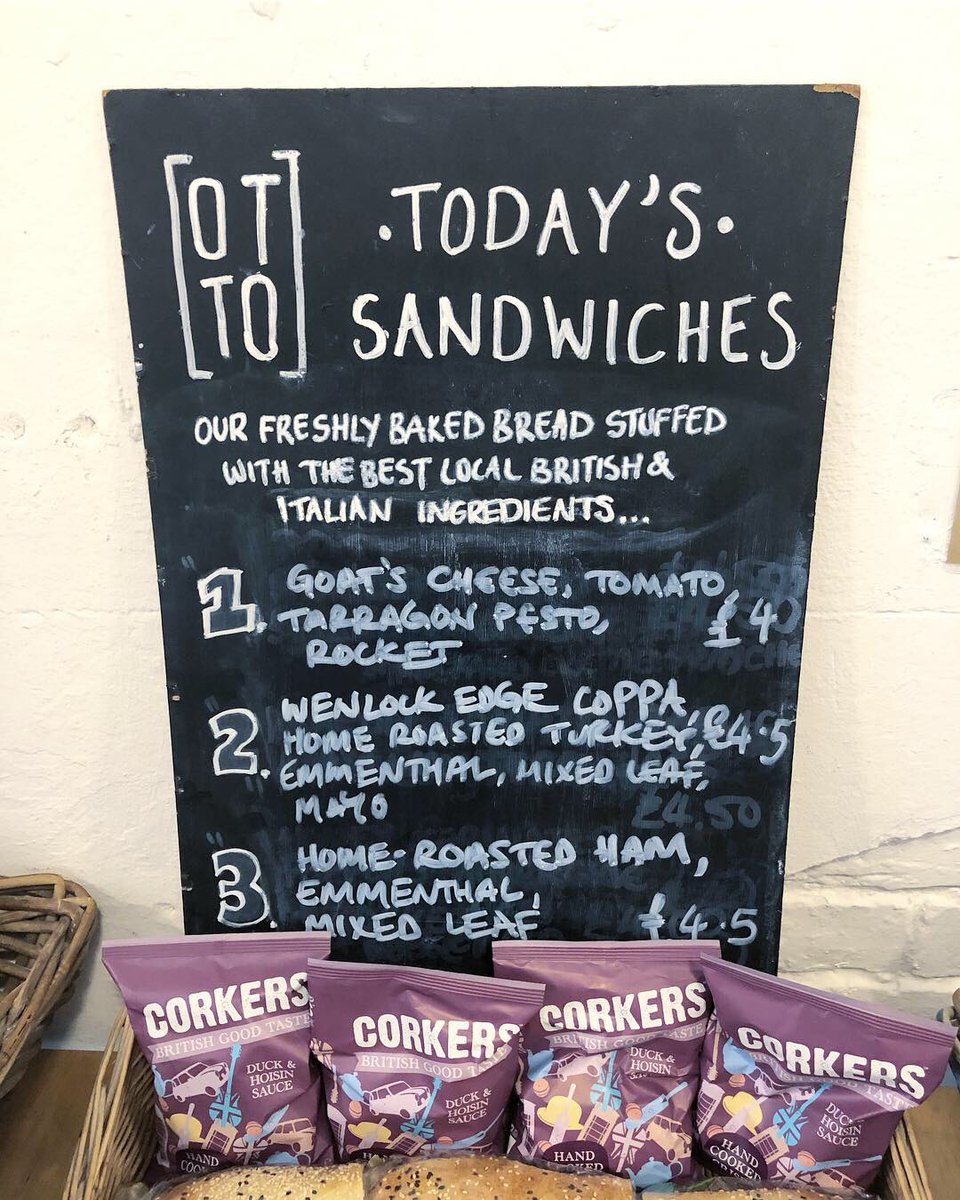 [OT
TO]
·TODAY'S·
SANDWICHES
OUR FRESHLY BAKED BREAD STUFFED
WITH THE BEST LOCAL BRITISH &
ITALIAN INGREDIENTS...
1. GOAT'S CHEESE, TOMATO,
TARRAGON PESTO, £4
ROCKET
2. WENLOCK EDGE COPPA,
HOME ROASTED TURKEY, £4.5
EMMENTHAL, MIXED LEAF,
MAYO
£4.50
3. HOME-ROASTED HAM,
EMMENTHAL,
MIXED LEAF £4.5
CORKERS
BRITISH GOOD TASTE
DUCK &
HOISIN
SAUCE
HAND
CORKERS
BRITISH GOOD
DUCK &
HOISIN
SAUCE
HAND
CORKERS
BRITISH GOOD TASTE
DUCK &
HOISIN
HAND
COOKED
CORKERS
BRITISH GOOD TASTE
DUCK &
HOISIN
SAUCE
HAND
COOKED